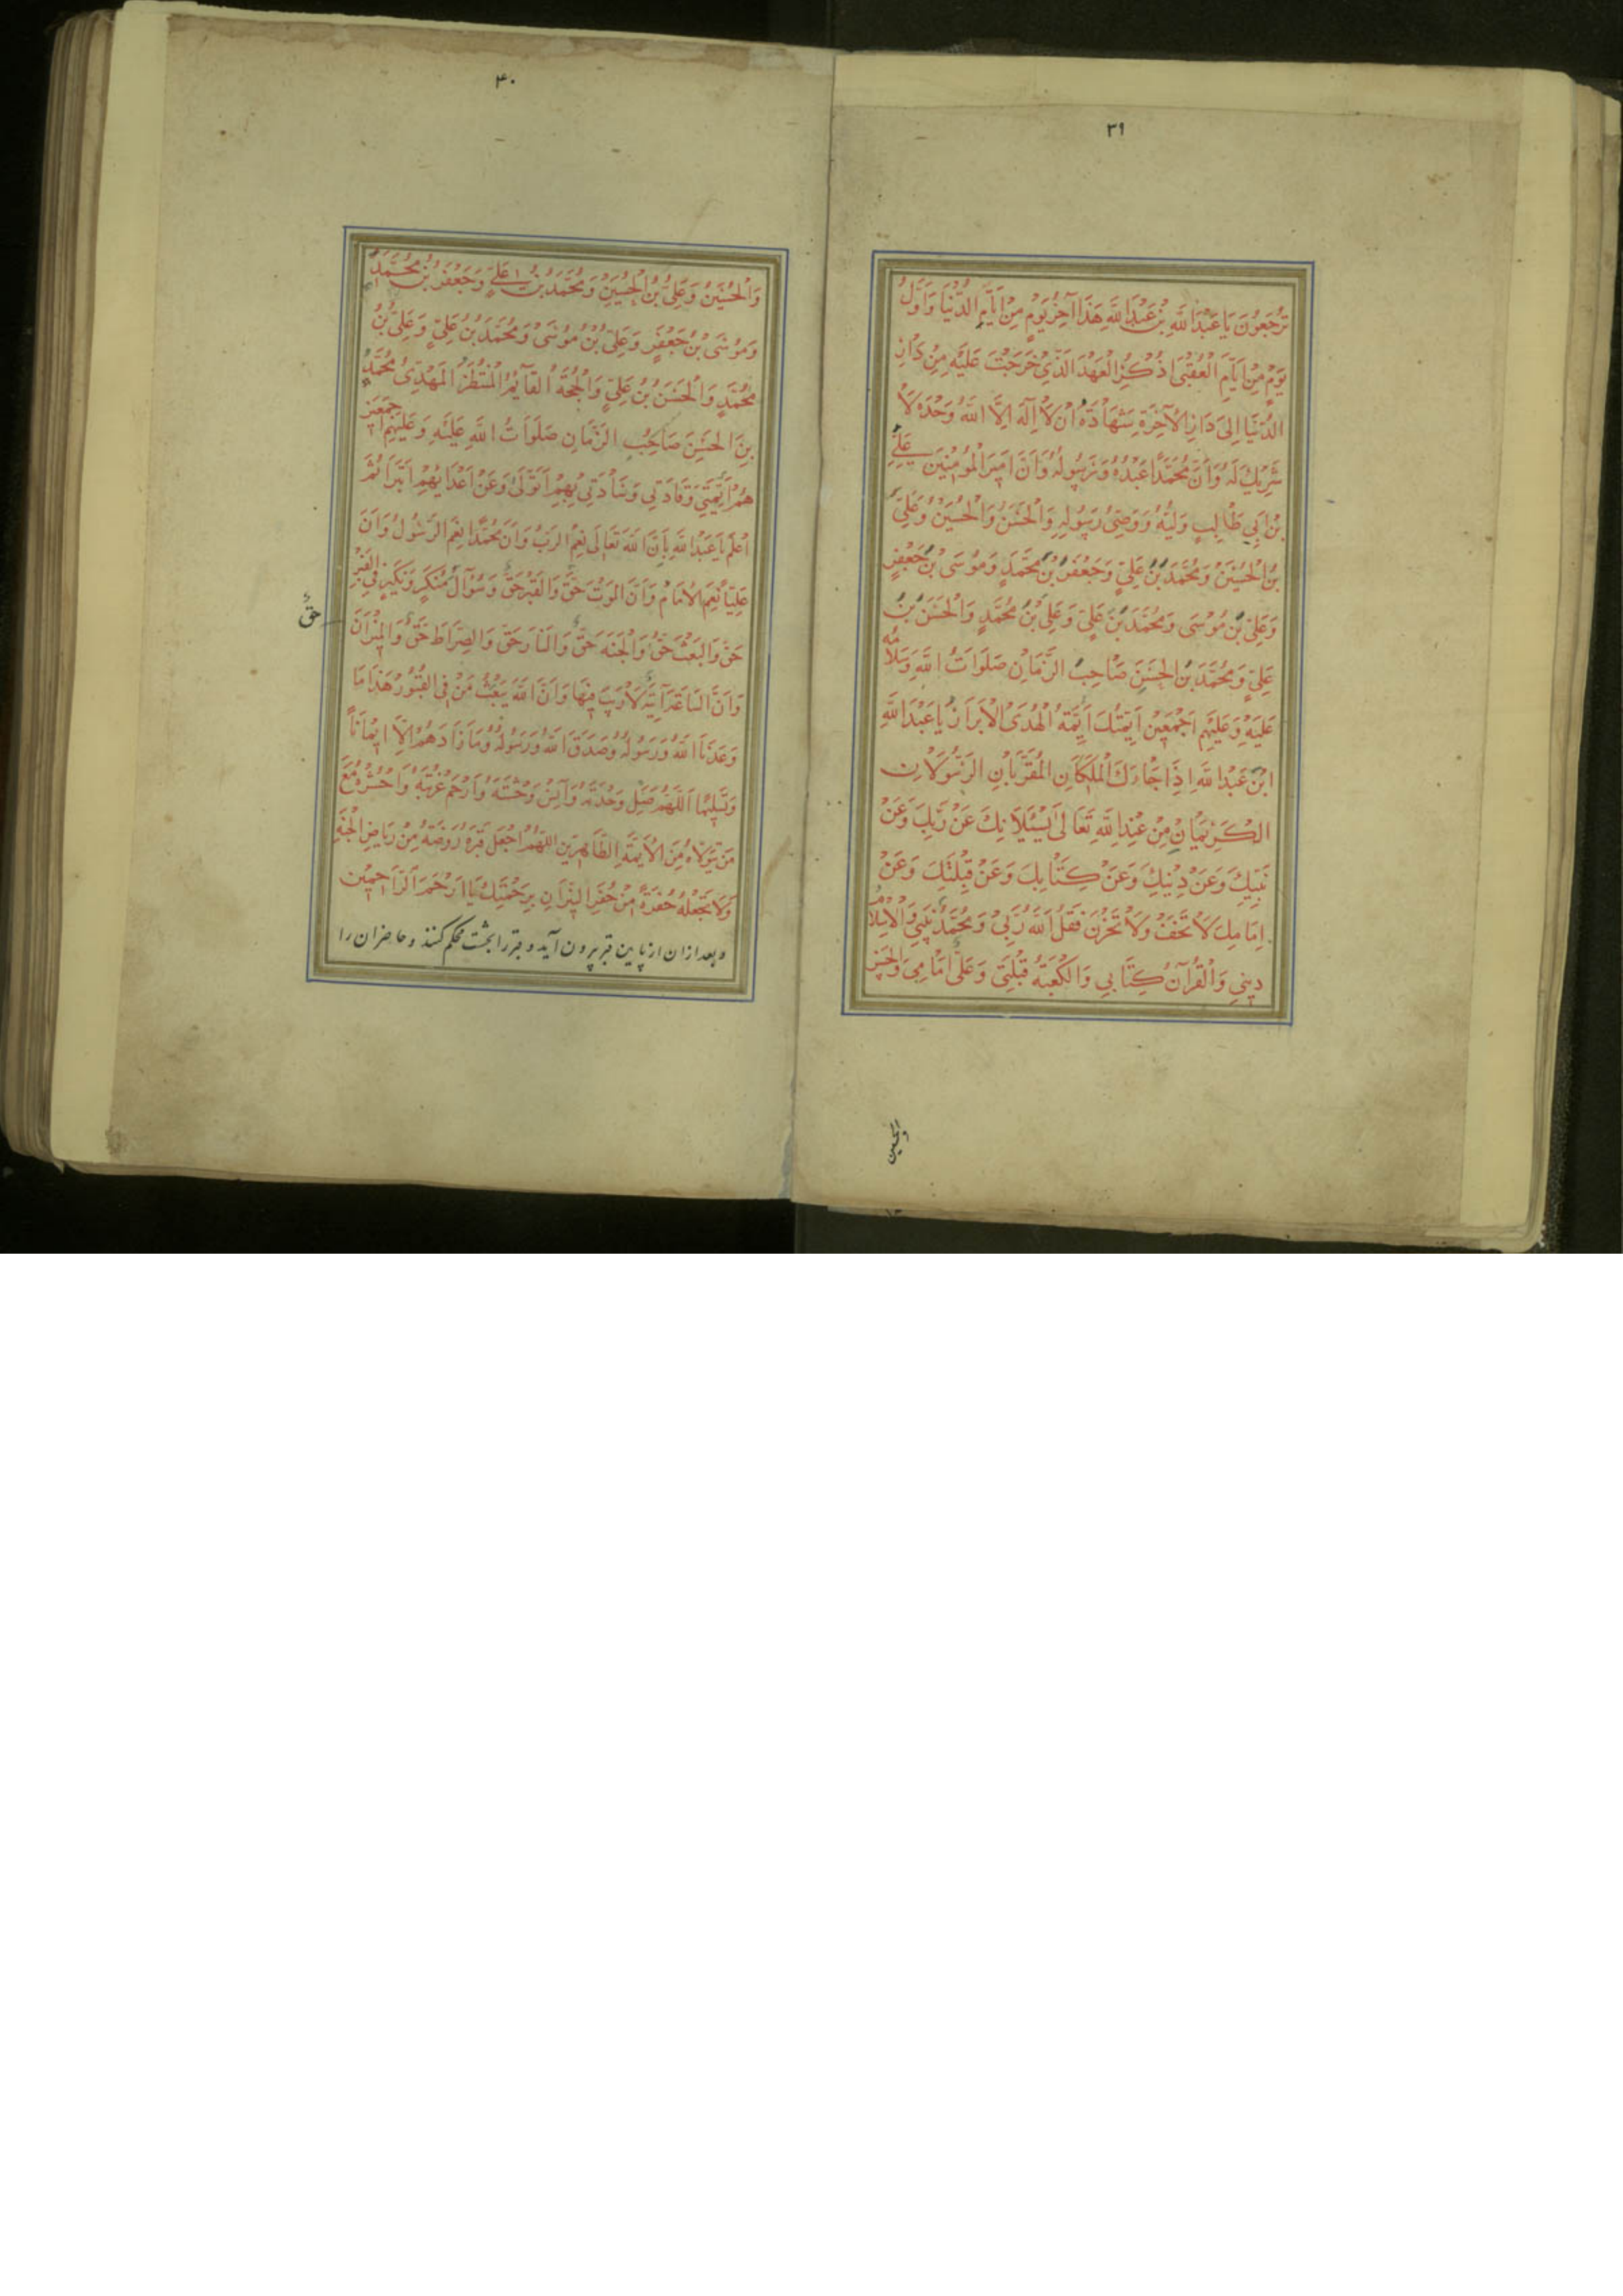 ۳۹
تُرْجَعُونَ يَا عَبْدَ اللَّهِ بْنَ عَبْدِ اللَّهِ هَذَا آخِرُ يَوْمٍ مِنْ أَيَّامِ الدُّنْيَا وَأَوَّلُ
يَوْمٍ مِنْ أَيَّامِ الْعُقْبَى اذْكُرِ الْعَهْدَ الَّذِي خَرَجْتَ عَلَيْهِ مِنْ دَارِ
الدُّنْيَا إِلَى دَارِ الْآخِرَةِ شَهَادَةُ أَنْ لَا إِلَهَ إِلَّا اللَّهُ وَحْدَهُ لَا
شَرِيكَ لَهُ وَأَنَّ مُحَمَّدًا عَبْدُهُ وَرَسُولُهُ وَأَنَّ أَمِيرَ الْمُؤْمِنِينَ عَلِيَّ
بْنَ أَبِي طَالِبٍ وَلِيُّهُ وَوَصِيُّ رَسُولِهِ وَالْحَسَنُ وَالْحُسَيْنُ وَعَلِيُّ
بْنُ الْحُسَيْنِ وَمُحَمَّدُ بْنُ عَلِيٍّ وَجَعْفَرُ بْنُ مُحَمَّدٍ وَمُوسَى بْنُ جَعْفَرٍ
وَعَلِيُّ بْنُ مُوسَى وَمُحَمَّدُ بْنُ عَلِيٍّ وَعَلِيُّ بْنُ مُحَمَّدٍ وَالْحَسَنُ بْنُ
عَلِيٍّ وَمُحَمَّدُ بْنُ الْحَسَنِ صَاحِبُ الزَّمَانِ صَلَوَاتُ اللَّهِ وَسَلَامُهُ
عَلَيْهِ وَعَلَيْهِمْ أَجْمَعِينَ أَئِمَّتُكَ أَئِمَّةُ الْهُدَى الْأَبْرَارُ يَا عَبْدَ اللَّهِ
ابْنَ عَبْدِ اللَّهِ إِذَا جَاءَكَ الْمَلَكَانِ الْمُقَرَّبَانِ الرَّسُولَانِ
الْكَرِيمَانِ مِنْ عِنْدِ اللَّهِ تَعَالَى يَسْئَلَانِكَ عَنْ رَبِّكَ وَعَنْ
نَبِيِّكَ وَعَنْ دِينِكَ وَعَنْ كِتَابِكَ وَعَنْ قِبْلَتِكَ وَعَنْ
إِمَامِكَ لَا تَخَفْ وَلَا تَحْزَنْ فَقُلْ اللَّهُ رَبِّي وَمُحَمَّدٌ نَبِيِّي وَالْإِسْلَامُ
دِينِي وَالْقُرْآنُ كِتَابِي وَالْكَعْبَةُ قِبْلَتِي وَعَلِيٌّ إِمَامِي وَالْحَسَنُ
والحسین
۴۰
وَالْحُسَيْنُ وَعَلِيُّ بْنُ الْحُسَيْنِ وَمُحَمَّدُ بْنُ عَلِيٍّ وَجَعْفَرُ بْنُ مُحَمَّدٍ
وَمُوسَى بْنُ جَعْفَرٍ وَعَلِيُّ بْنُ مُوسَى وَمُحَمَّدُ بْنُ عَلِيٍّ وَعَلِيُّ بْنُ
مُحَمَّدٍ وَالْحَسَنُ بْنُ عَلِيٍّ وَالْحُجَّةُ الْقَائِمُ الْمُنْتَظَرُ الْمَهْدِيُّ مُحَمَّدُ
بْنُ الْحَسَنِ صَاحِبُ الزَّمَانِ صَلَوَاتُ اللَّهِ عَلَيْهِ وَعَلَيْهِمْ أَجْمَعِينَ
هُمْ أَئِمَّتِي وَقَادَتِي وَسَادَتِي بِهِمْ أَتَوَلَّى وَعَنْ أَعْدَائِهِمْ أَتَبَرَّأُ ثُمَّ
اعْلَمْ يَا عَبْدَ اللَّهِ بِأَنَّ اللَّهَ تَعَالَى نِعْمَ الرَّبُّ وَأَنَّ مُحَمَّدًا نِعْمَ الرَّسُولُ وَأَنَّ
عَلِيًّا نِعْمَ الْإِمَامُ وَأَنَّ الْمَوْتَ حَقٌّ وَالْقَبْرَ حَقٌّ وَسُؤَالَ مُنْكَرٍ وَنَكِيرٍ فِي الْقَبْرِ
حَقٌّ وَالْبَعْثَ حَقٌّ وَالْجَنَّةَ حَقٌّ وَالنَّارَ حَقٌّ وَالصِّرَاطَ حَقٌّ وَالْمِيزَانَ
حَقٌّ
وَأَنَّ السَّاعَةَ آتِيَةٌ لَا رَيْبَ فِيهَا وَأَنَّ اللَّهَ يَبْعَثُ مَنْ فِي الْقُبُورِ هَذَا مَا
وَعَدَنَا اللَّهُ وَرَسُولُهُ وَصَدَقَ اللَّهُ وَرَسُولُهُ وَمَا زَادَهُمْ إِلَّا إِيمَانًا
وَتَسْلِيمًا اللَّهُمَّ صِلْ وَحْدَتَهُ وَآنِسْ وَحْشَتَهُ وَارْحَمْ غُرْبَتَهُ وَاحْشُرْهُ مَعَ
مَنْ يَتَوَلَّاهُ مِنَ الْأَئِمَّةِ الطَّاهِرِينَ اللَّهُمَّ اجْعَلْ قَبْرَهُ رَوْضَةً مِنْ رِيَاضِ الْجَنَّةِ
وَلَا تَجْعَلْهُ حُفْرَةً مِنْ حُفَرِ النِّيرَانِ بِرَحْمَتِكَ يَا أَرْحَمَ الرَّاحِمِينَ
و بعد ازان از پایین قبر بیرون آید و قبر را بخشت محکم کنند و حاضران را